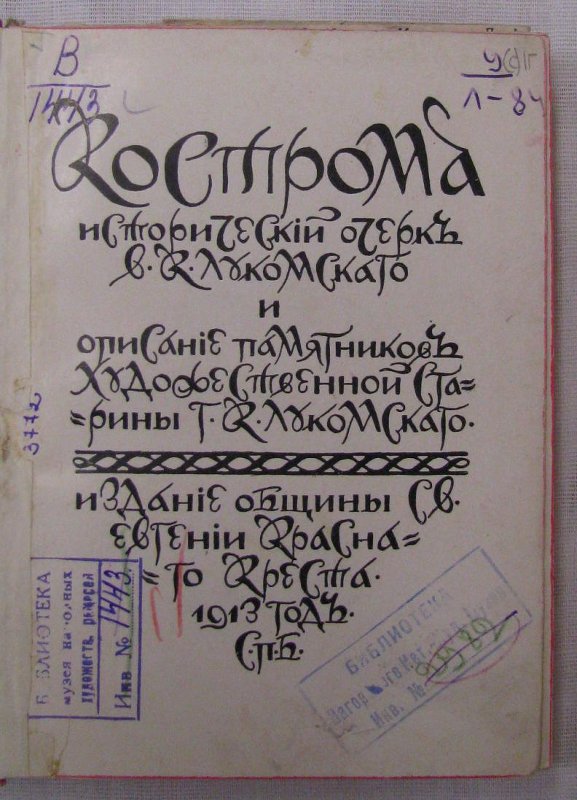 В
1443
Л-84
Кострома
историческiй очеркъ
В. К. Лукомскаго
и
описанiе памятниковъ
художественной ста=
=рины Г. К. Лукомскаго.
изданiе общины Св.
Евгенiи Краснa=
=го Креста.
1913 годъ.
С.П.Б.
3772
БИБЛИОТЕКА
музея народных
художеств. ремесел
Инв №1443
БИБЛИОТЕКА
Инв. №